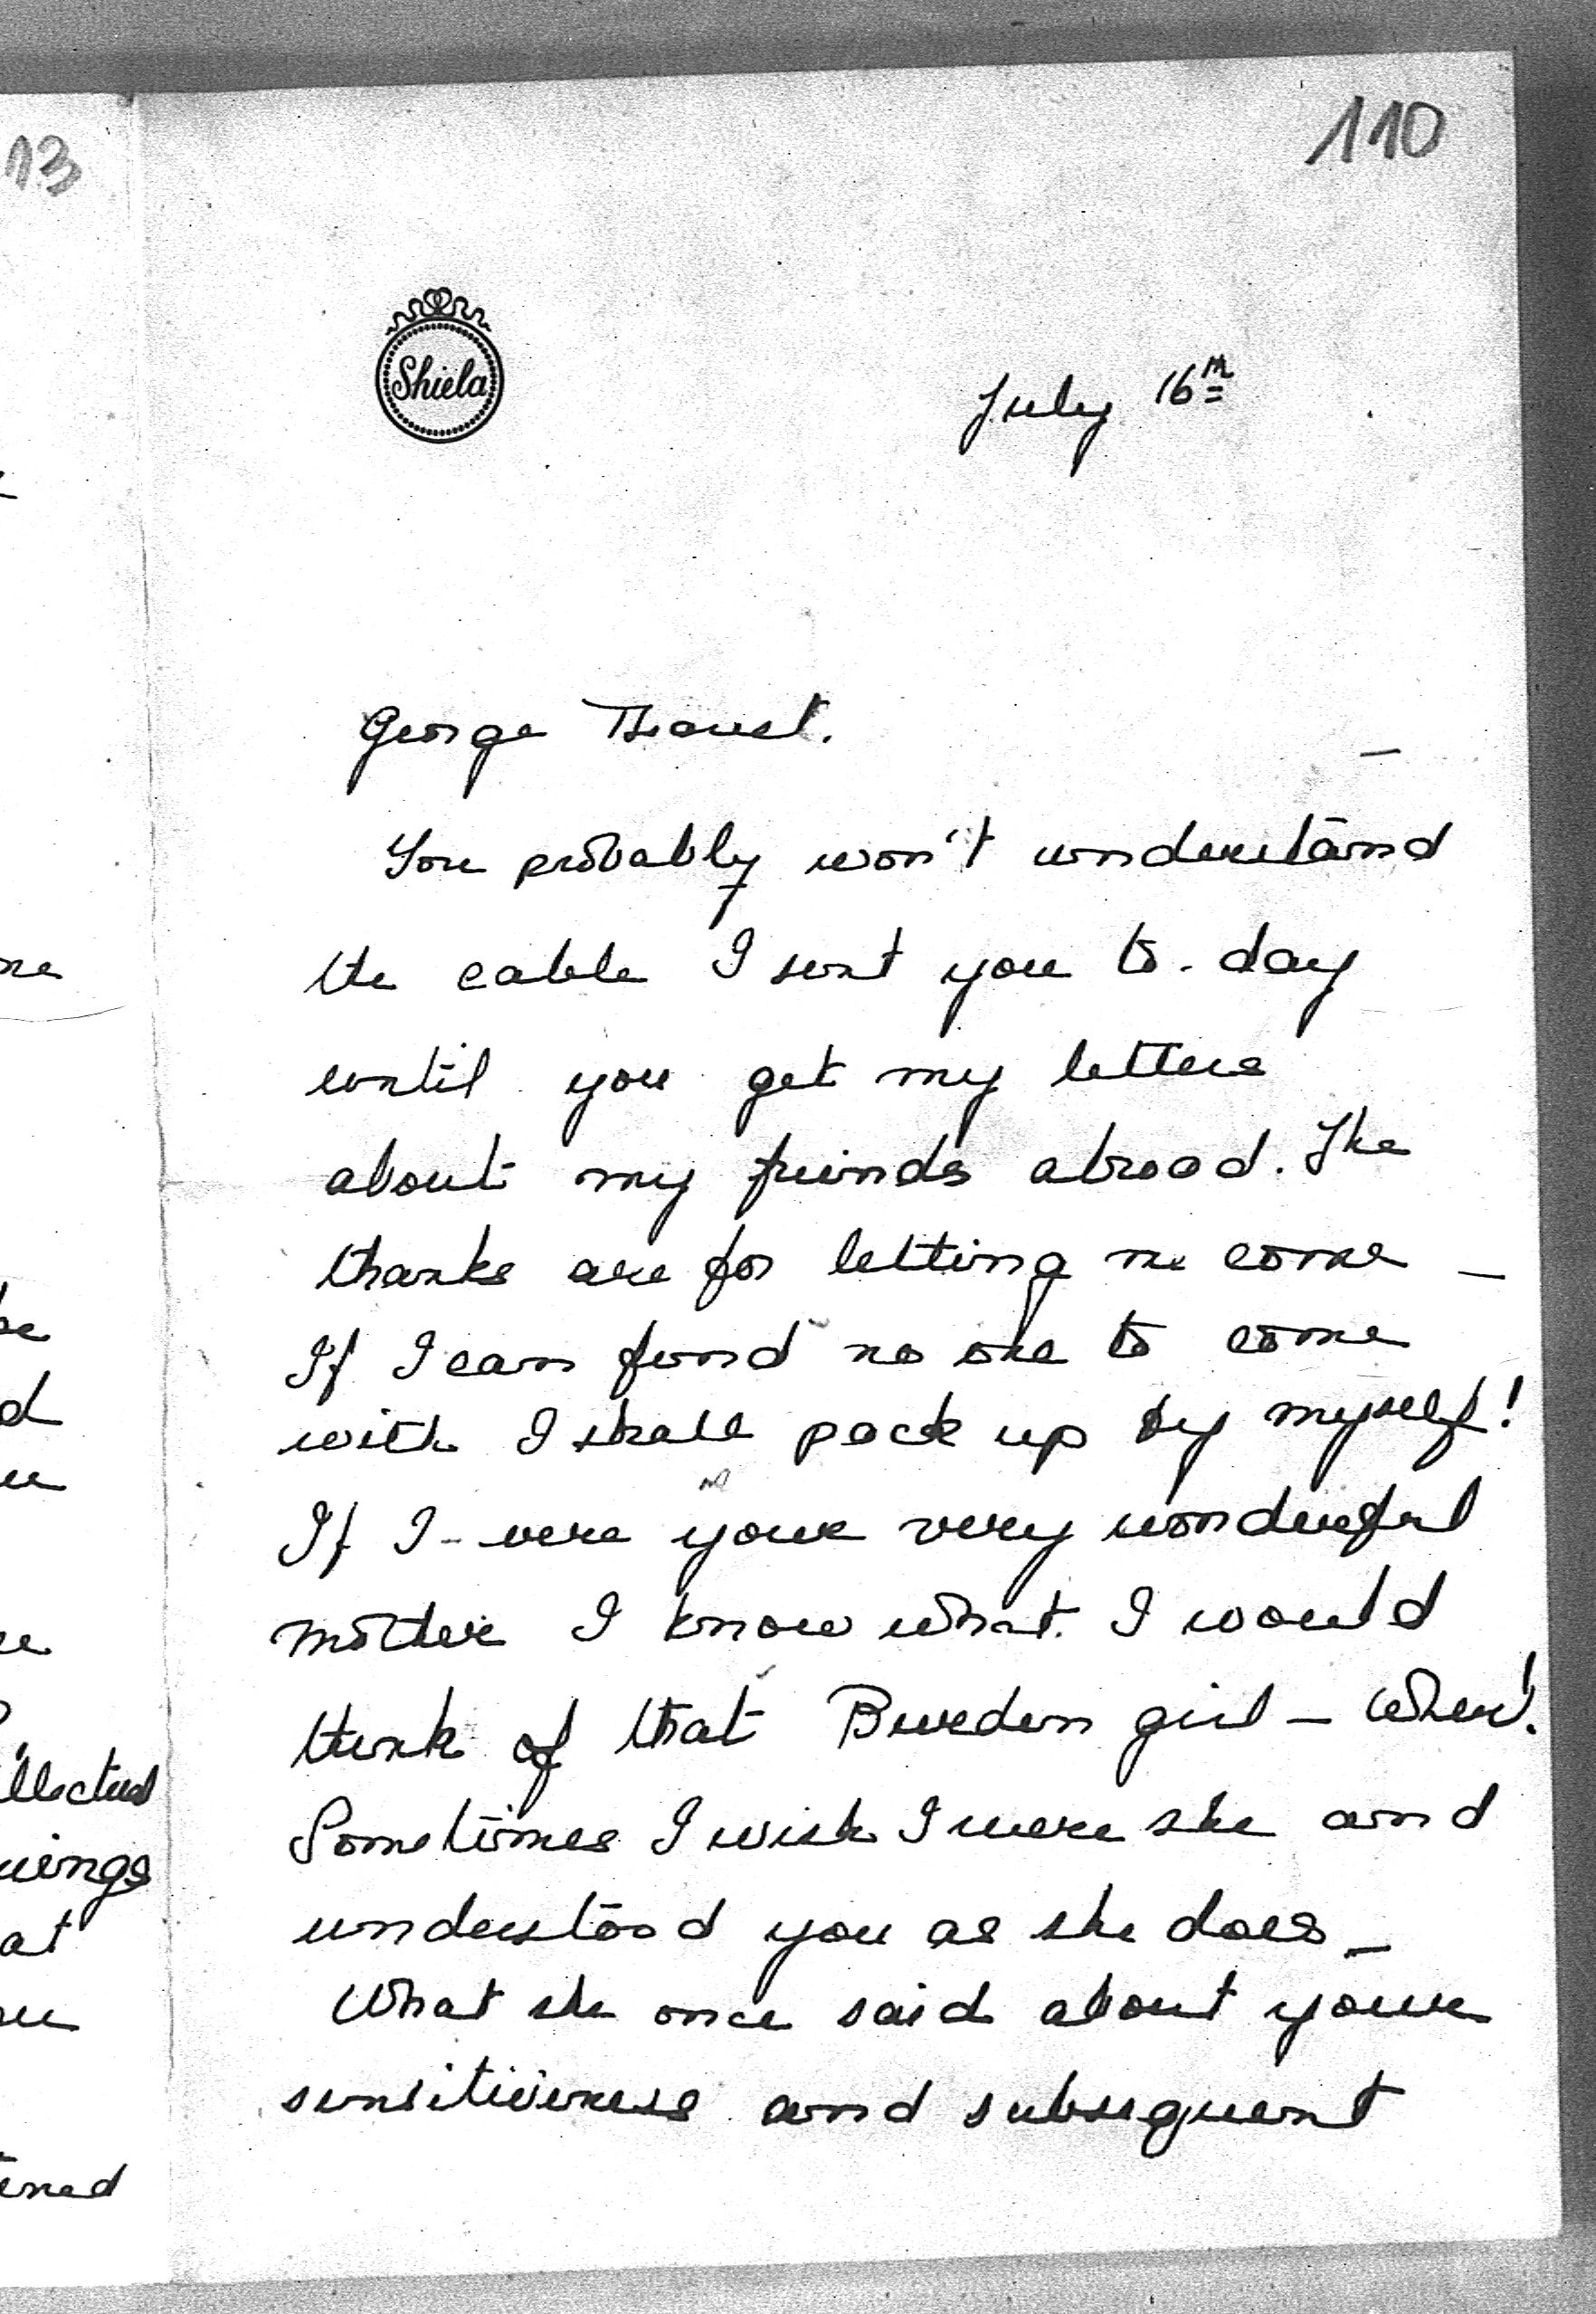 13
110
Shiela
July 16th
George Thoust.
You probably won't understand
the cable I sent you to-day
until you get my letters
about my friends abroad. The
thanks are for letting me come —
If I can find no one to come
with I shall pack up by myself!
If I were your very wonderful
mother I know what I would
think of that Burden girl — Whew!
Sometimes I wish I were she and
understood you as she does —
What she once said about your
sensitiveness and subsequent